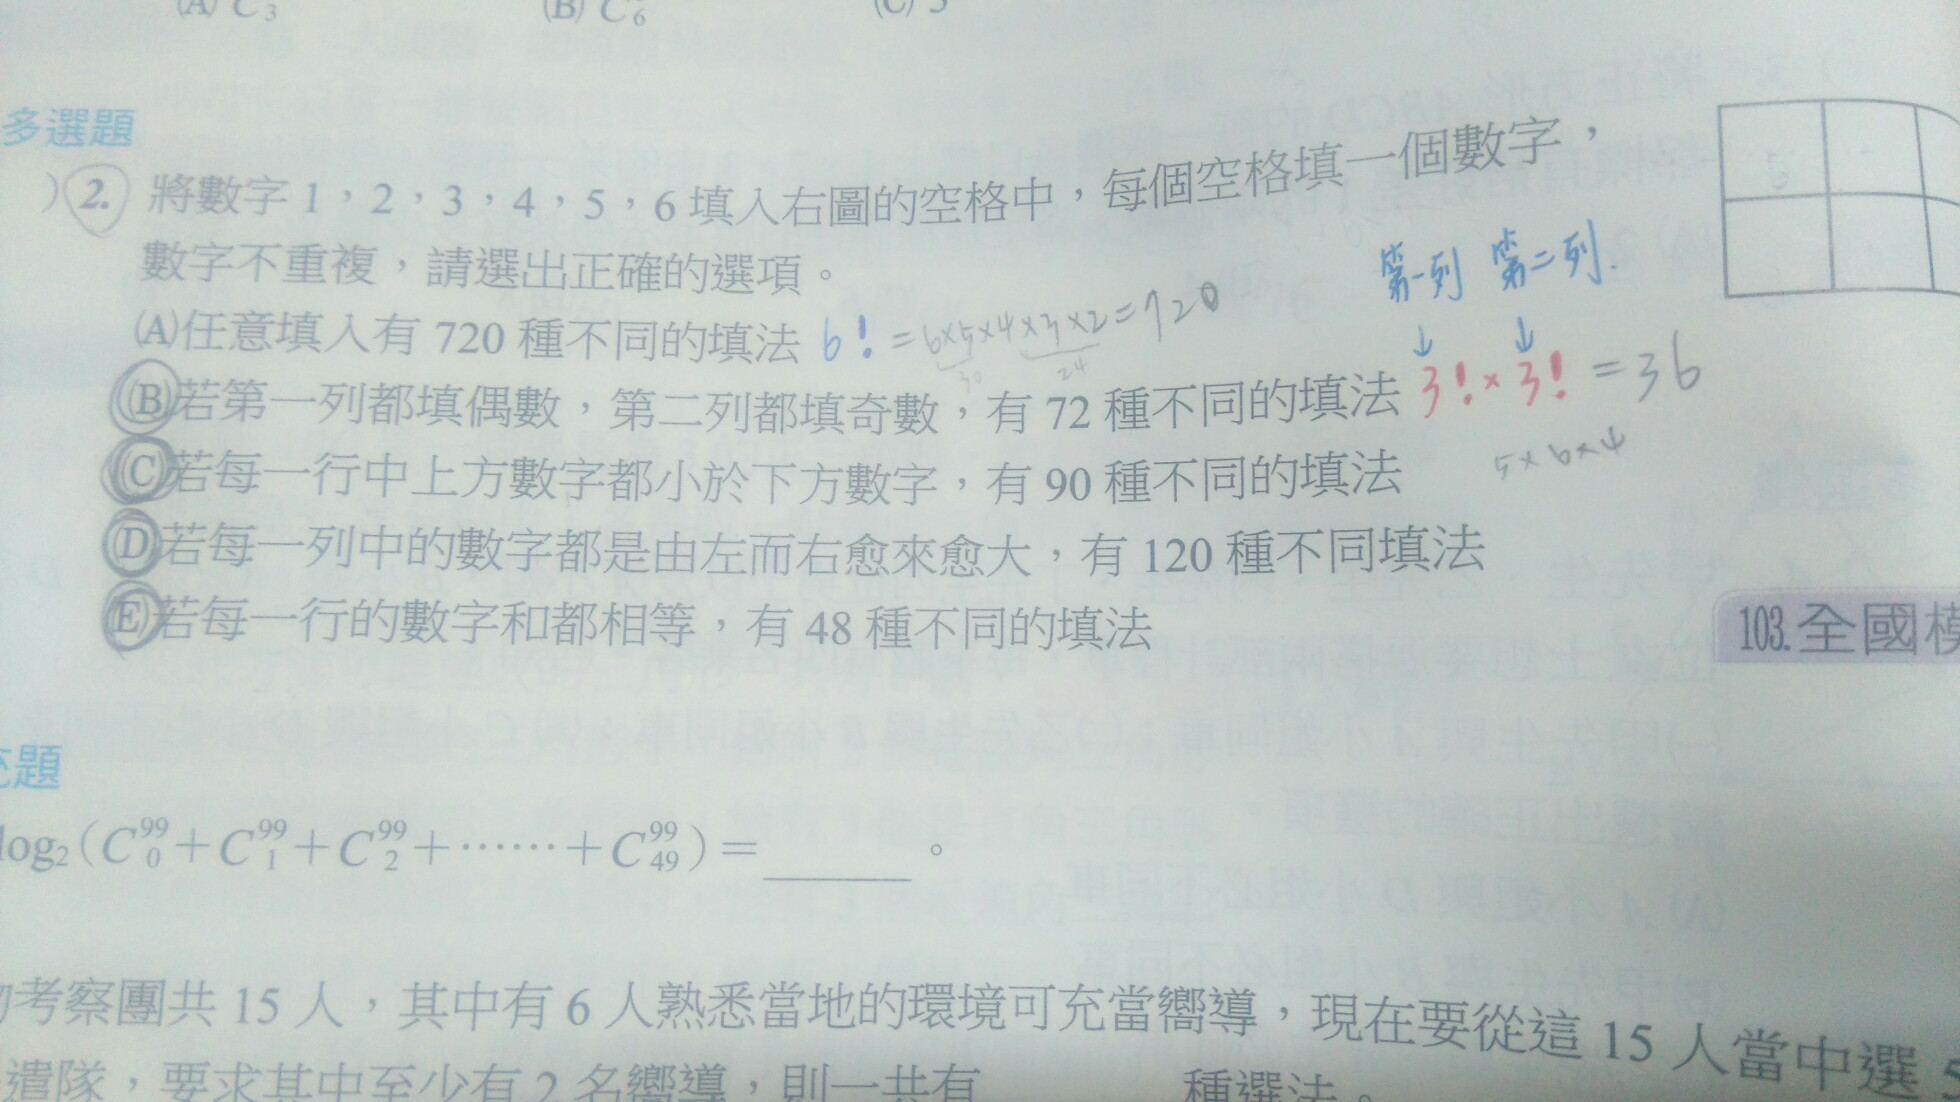 (A) C 3 (B) C 6 (C) 5
多選題
)2. 將數字 1,2,3,4,5,6 填入右圖的空格中,每個空格填一個數字,
數字不重複,請選出正確的選項。
第一列 第二列.
(A)任意填入有 720 種不同的填法 6! = 6×5×4×3×2=720
30 24
(B)若第一列都填偶數,第二列都填奇數,有 72 種不同的填法 3!×3! =36
(C)若每一行中上方數字都小於下方數字,有 90 種不同的填法 5×6×4
(D)若每一列中的數字都是由左而右愈來愈大,有 120 種不同填法
(E)若每一行的數字和都相等,有 48 種不同的填法
103.全國模
充題
log₂(C⁹⁹₀+C⁹⁹₁+C⁹⁹₂+⋯⋯+C⁹⁹₄₉)=______。
考察團共 15 人,其中有 6 人熟悉當地的環境可充當嚮導,現在要從這 15 人當中選 5
遣隊,要求其中至少有 2 名嚮導,則一共有 種選法。